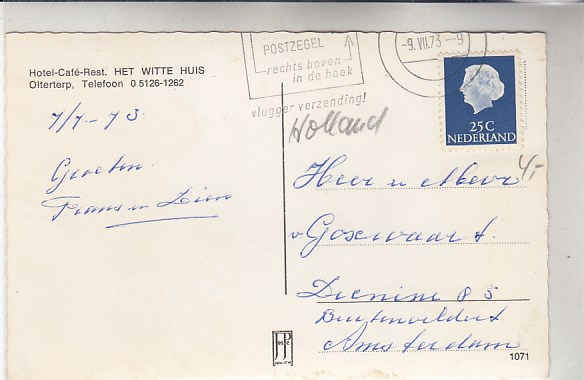 Hotel-Café-Rest. HET WITTE HUIS
Olterterp, Telefoon 0 5126-1262
7/7-73
Groeten
Frans en Lien
POSTZEGEL
rechts boven
in de hoek
vlugger verzending!
-9.VII.73-9
25 C
NEDERLAND
Holland
4,-
Heer u Mevr
v Goxwaard.
85
Buitenveldert
Amsterdam
1071